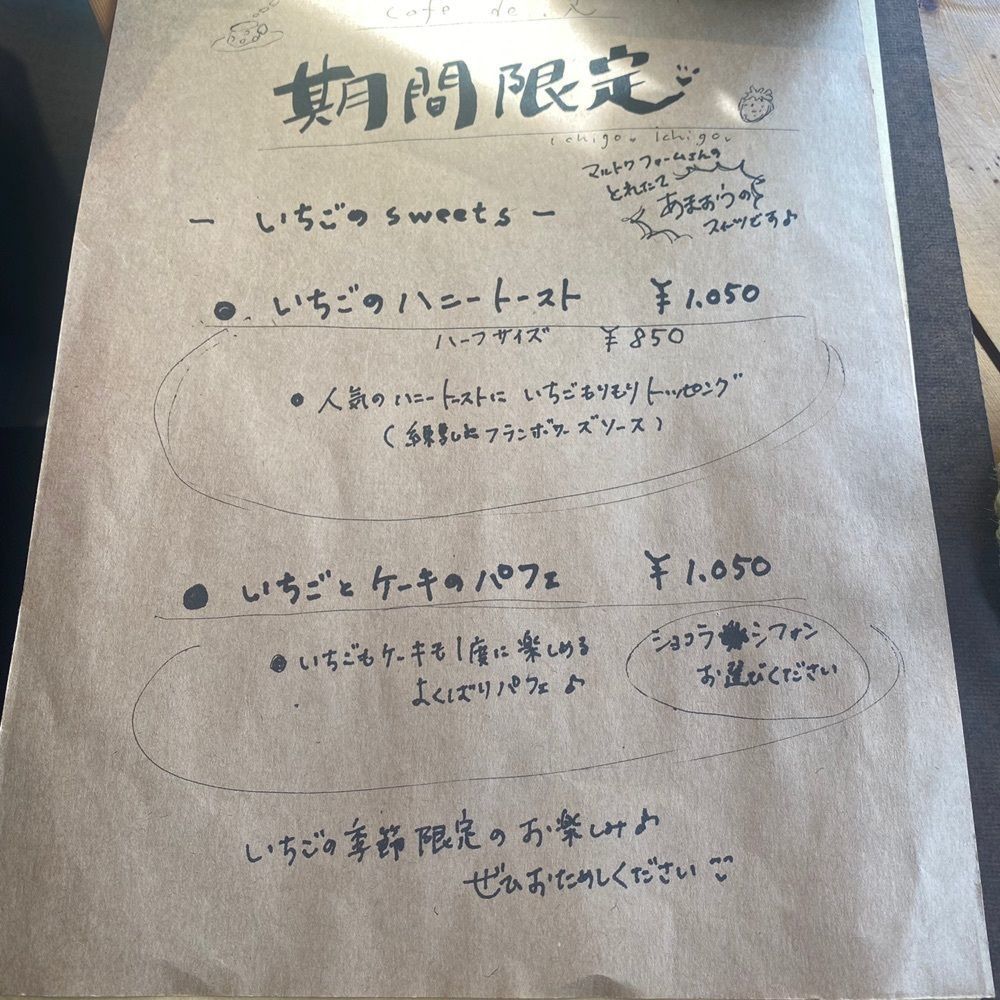 cafe de
期間限定
ichigo. ichigo.
マルトワファームさんの
とれたて
あまおうの
スイーツです♪
ー いちごの sweets ー
● いちごのハニートースト ¥1.050
ハーフサイズ ¥850
● 人気のハニートーストに いちごもりもりトッピング
(フランボワーズソース)
● いちごとケーキのパフェ ¥1.050
● いちごもケーキも1度に楽しめる
よくばりパフェ♪
ショコラ シフォン
お選びください
いちごの季節限定のお楽しみ♪
ぜひおためしください